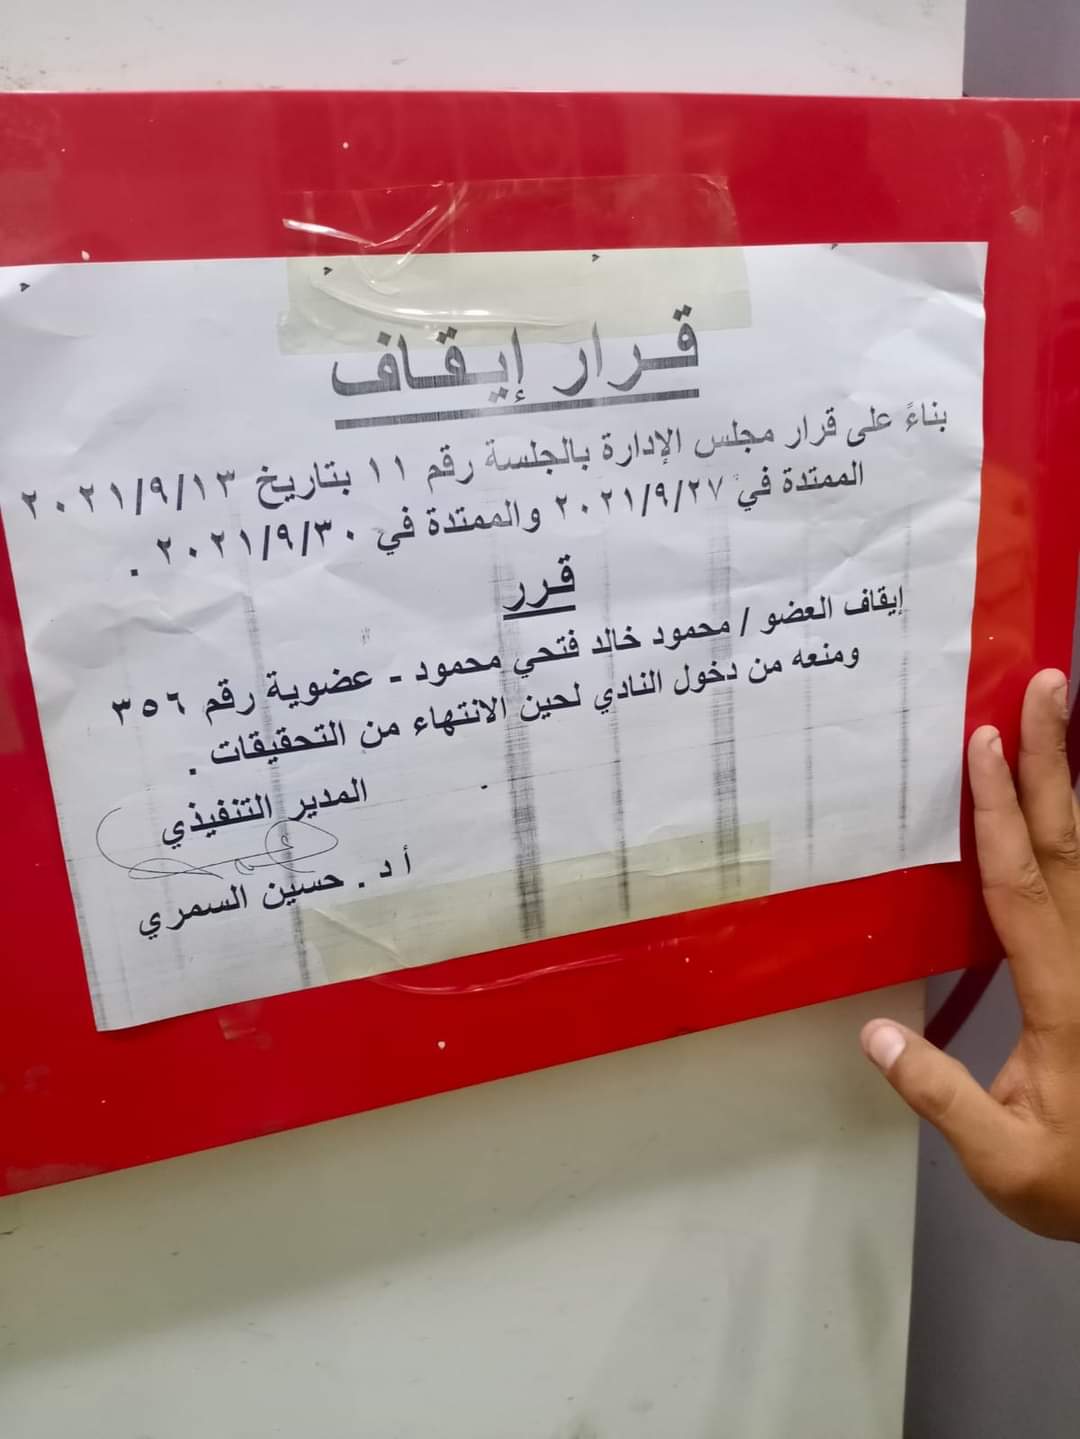 قرار إيقاف
بناءً على قرار مجلس الإدارة بالجلسة رقم ١١ بتاريخ ٢٠٢١/٩/١٣
الممتدة في ٢٠٢١/٩/٢٧ والممتدة في ٢٠٢١/٩/٣٠ .
قرر
إيقاف العضو / محمود خالد فتحي محمود - عضوية رقم ٣٥٦
ومنعه من دخول النادي لحين الانتهاء من التحقيقات .
المدير التنفيذي
أ د . حسين السمري